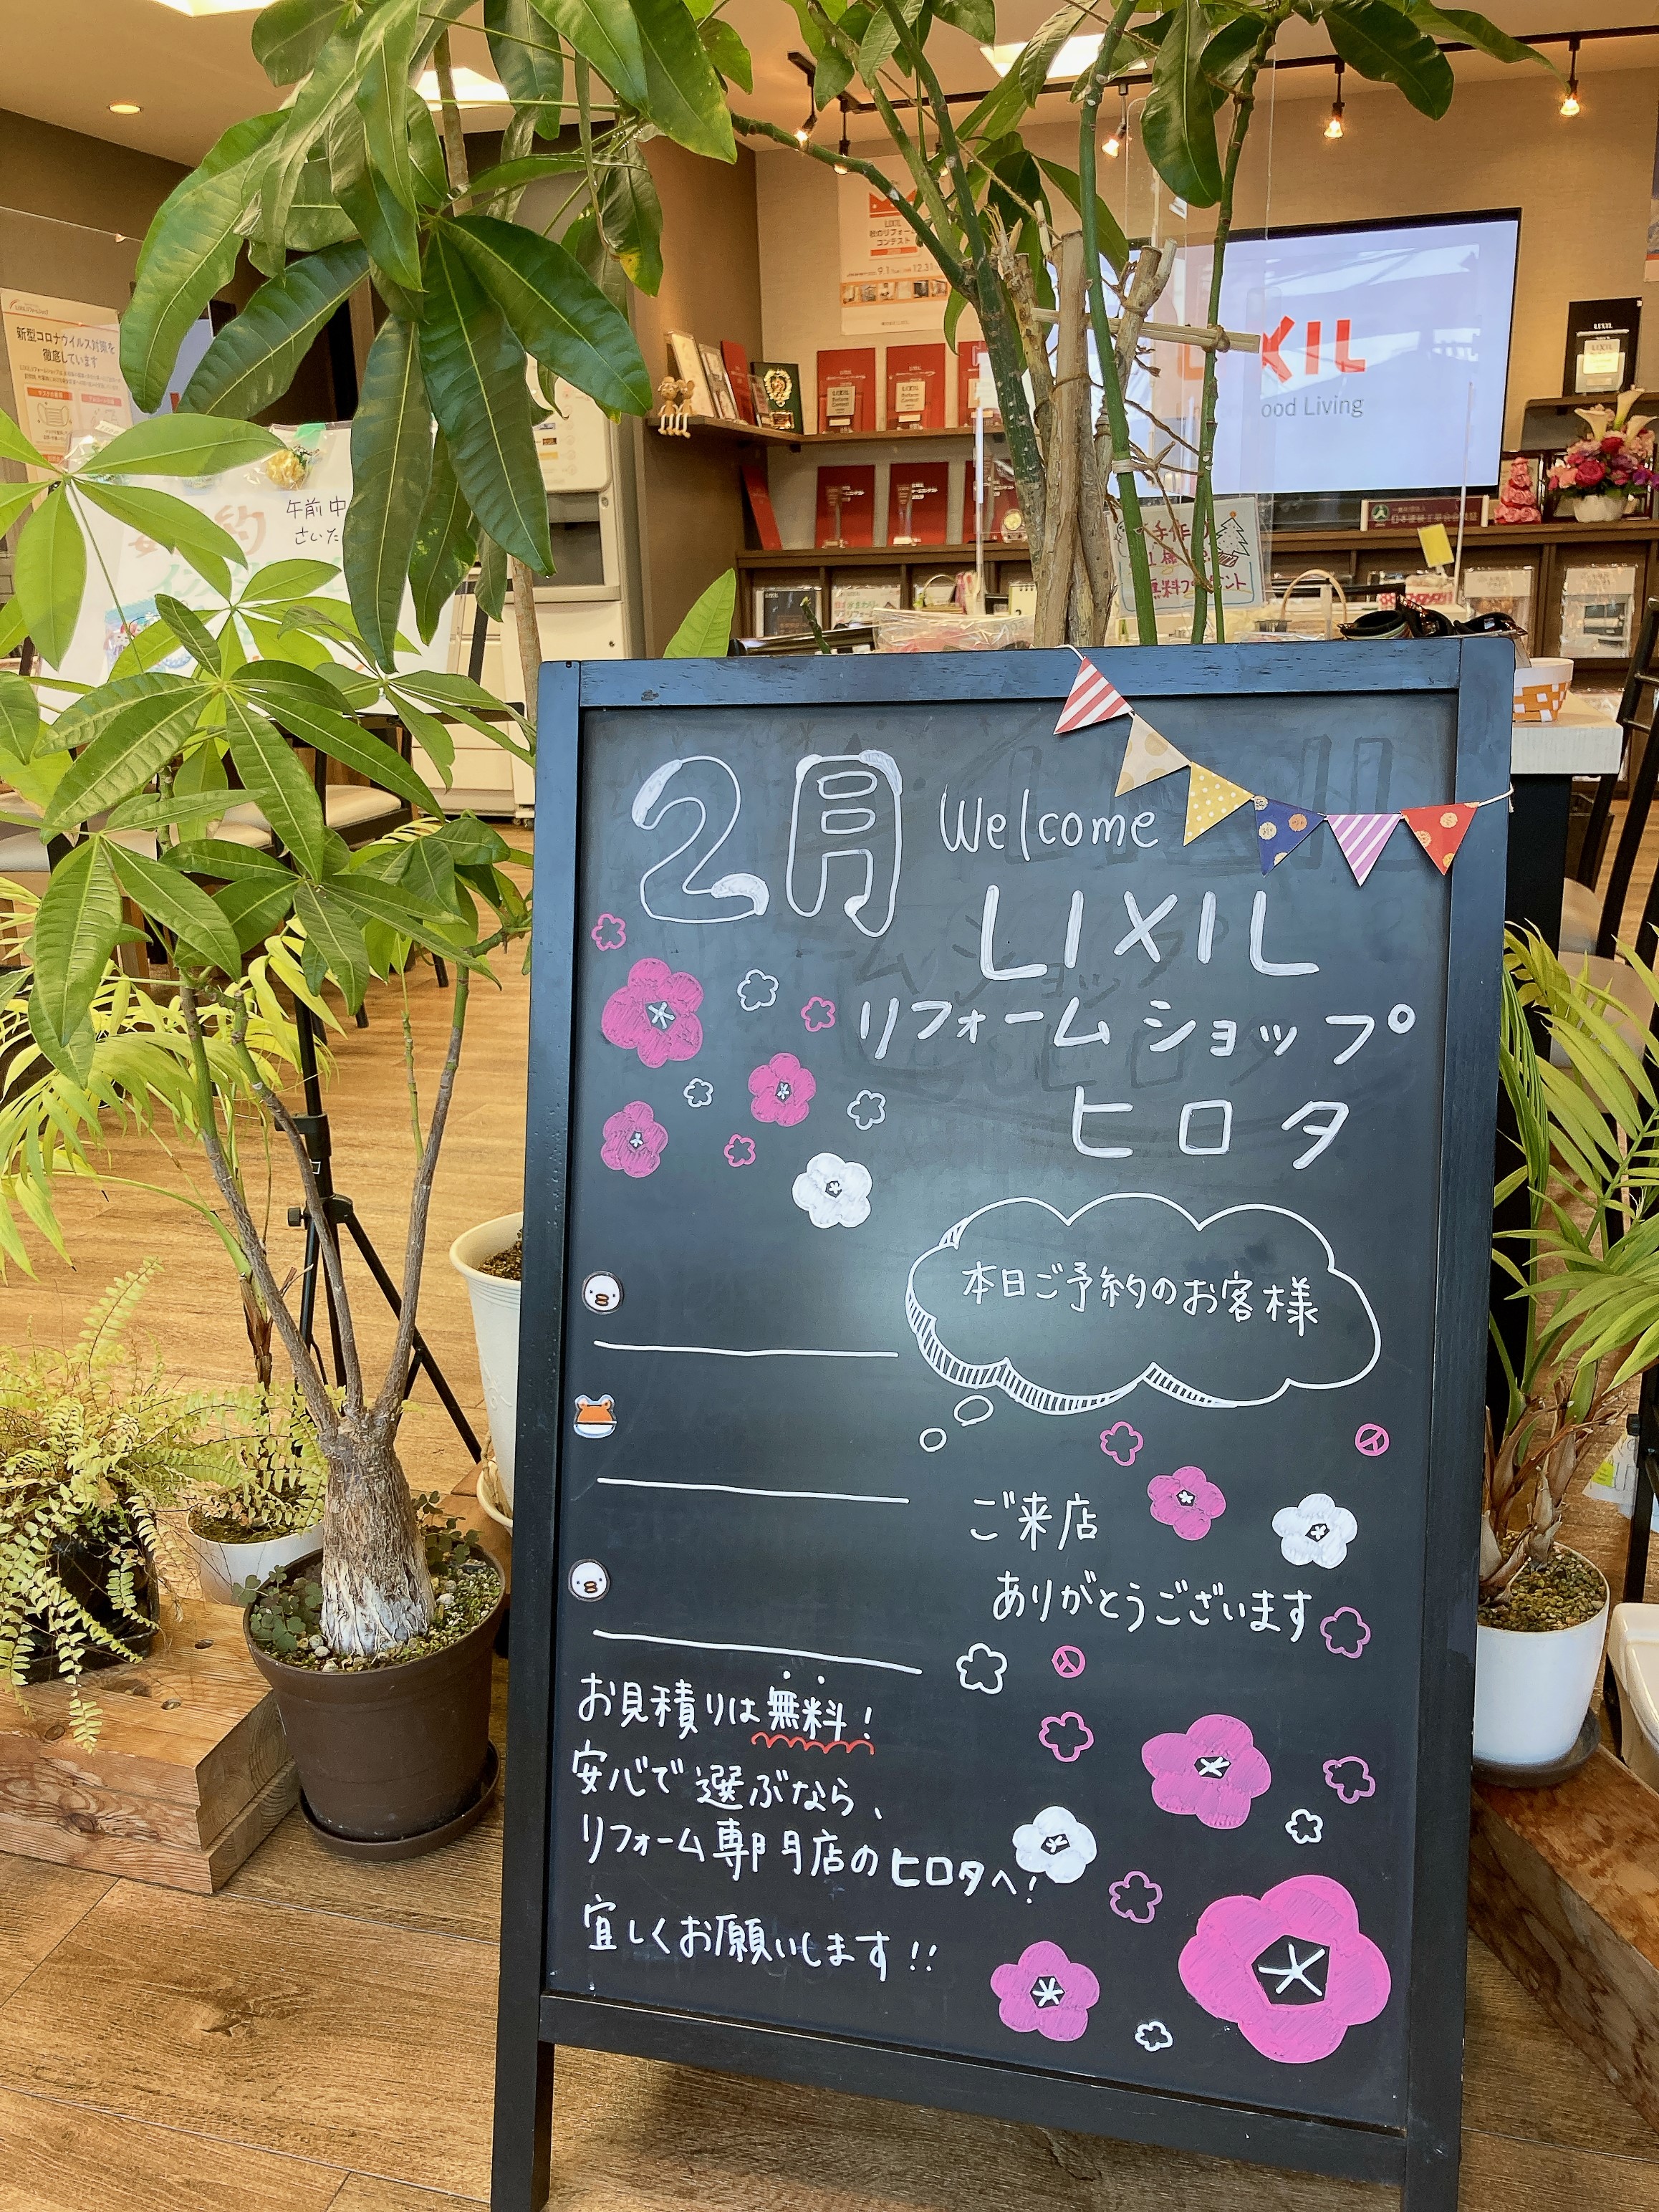 2月
Welcome
LIXIL
リフォームショップ
ヒロタ
本日ご予約のお客様
ご来店
ありがとうございます
お見積りは無料！
安心で選ぶなら、
リフォーム専門店のヒロタへ！
宜しくお願いします！！
新型コロナウイルス対策を
徹底しています
午前中
LIXIL
コンテスト
9.1
12.31
XIL
ood Living
手作り
LIXIL